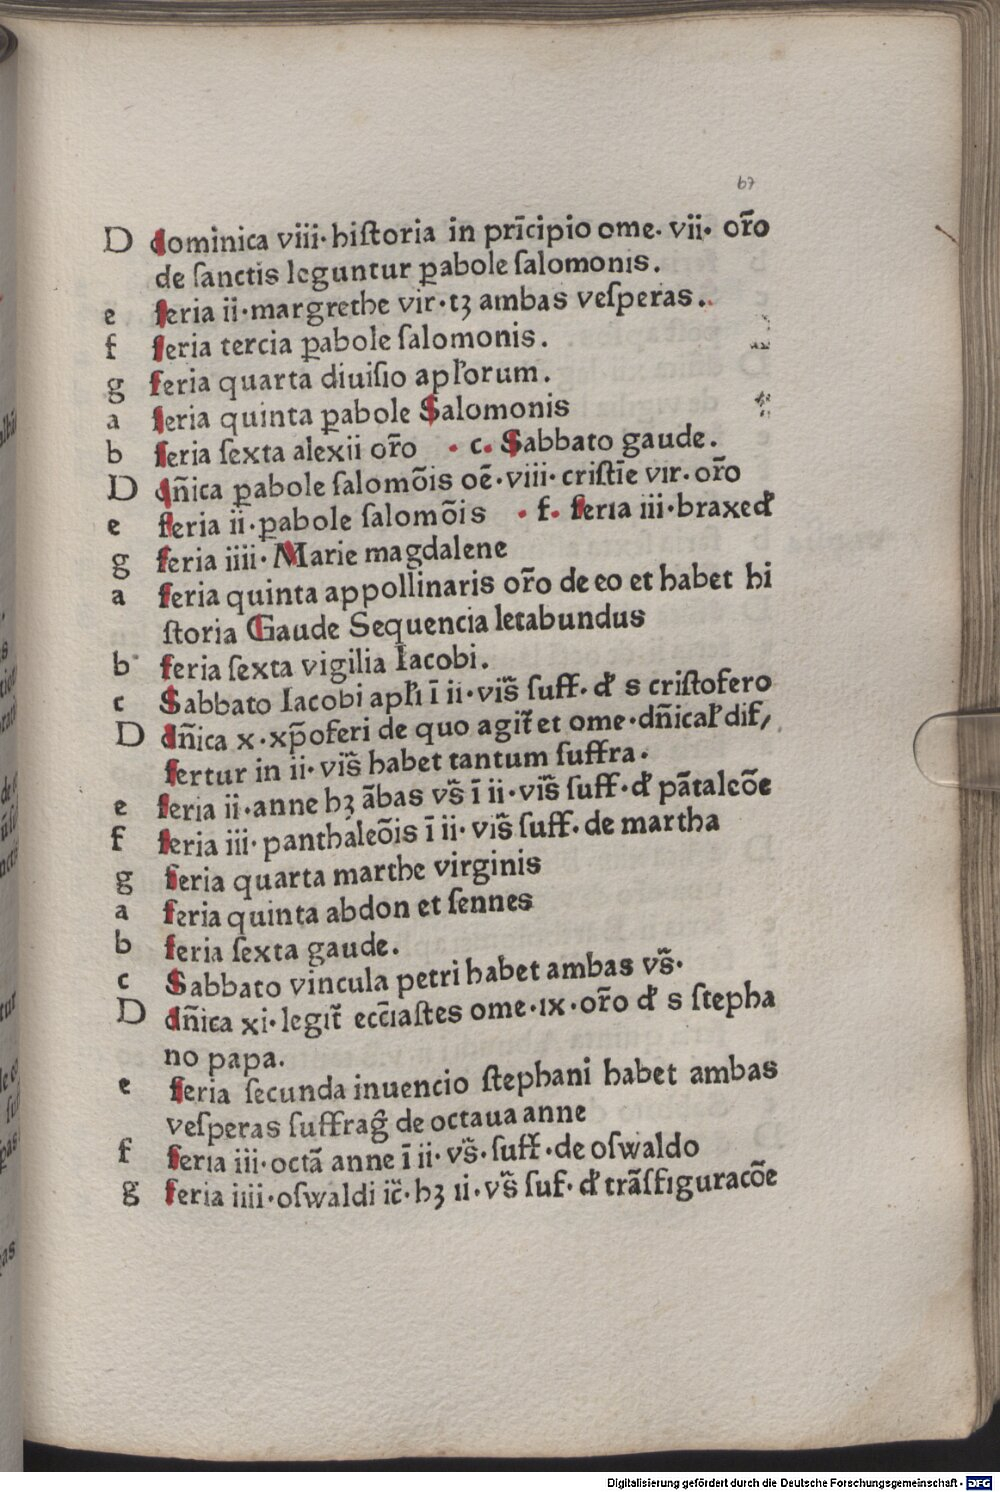 67
D dominica viii· hiſtoria in prīcipio ome· vii· or̄o
de ſanctis leguntur ꝑabole ſalomonis.
e feria ii·margrethe vir·tꝫ ambas veſperas..
f feria tercia ꝑabole ſalomonis.
g feria quarta diuiſio apl̄orum.
a feria quinta ꝑabole Salomonis
b feria ſexta alexii or̄o · c. Sabbato gaude.
D dn̄ica ꝑabole ſalomōis oē·viii· criſtīe vir·or̄o
e feria ii·ꝑabole ſalomōis · f· feria iii·braxed̕
g feria iiii·Marie magdalene
a feria quinta appollinaris or̄o de eo et habet hi
ſtoria Gaude Sequencia letabundus
b feria ſexta vigilia Iacobi.
c Sabbato Iacobi apl̄i ī ii·viſ̄ ſuff· d̕ s criſtofero
D dn̄ica x·xp̄oferi de quo agit᷑ et ome·dn̄ical̕ dif/
fertur in ii· viſ̄ habet tantum ſuffra·
e feria ii·anne hꝫ ābas vſ̄ ī ii·viſ̄ ſuff·d̕ pātaleōe
f feria iii· panthaleōis ī ii· viſ̄ ſuff·de martha
g feria quarta marthe virginis
a feria quinta abdon et ſennes
b feria ſexta gaude.
c Sabbato vincula petri habet ambas vſ̄·
D dn̄ica xi·legit᷑ ecc̄iaſtes ome·ix·or̄o d̕ s ſtepha
no papa.
e feria ſecunda inuencio ſtephani habet ambas
veſperas ſuffrag̅ de octaua anne
f feria iii·octā anne ī ii· vſ̄·ſuff·de oſwaldo
g feria iiii·oſwaldi ic̄·hꝫ ii·vſ̄ ſuf·d̕ trāſfiguracōe
Digitalisierung gefördert durch die Deutsche Forschungsgemeinschaft - DFG